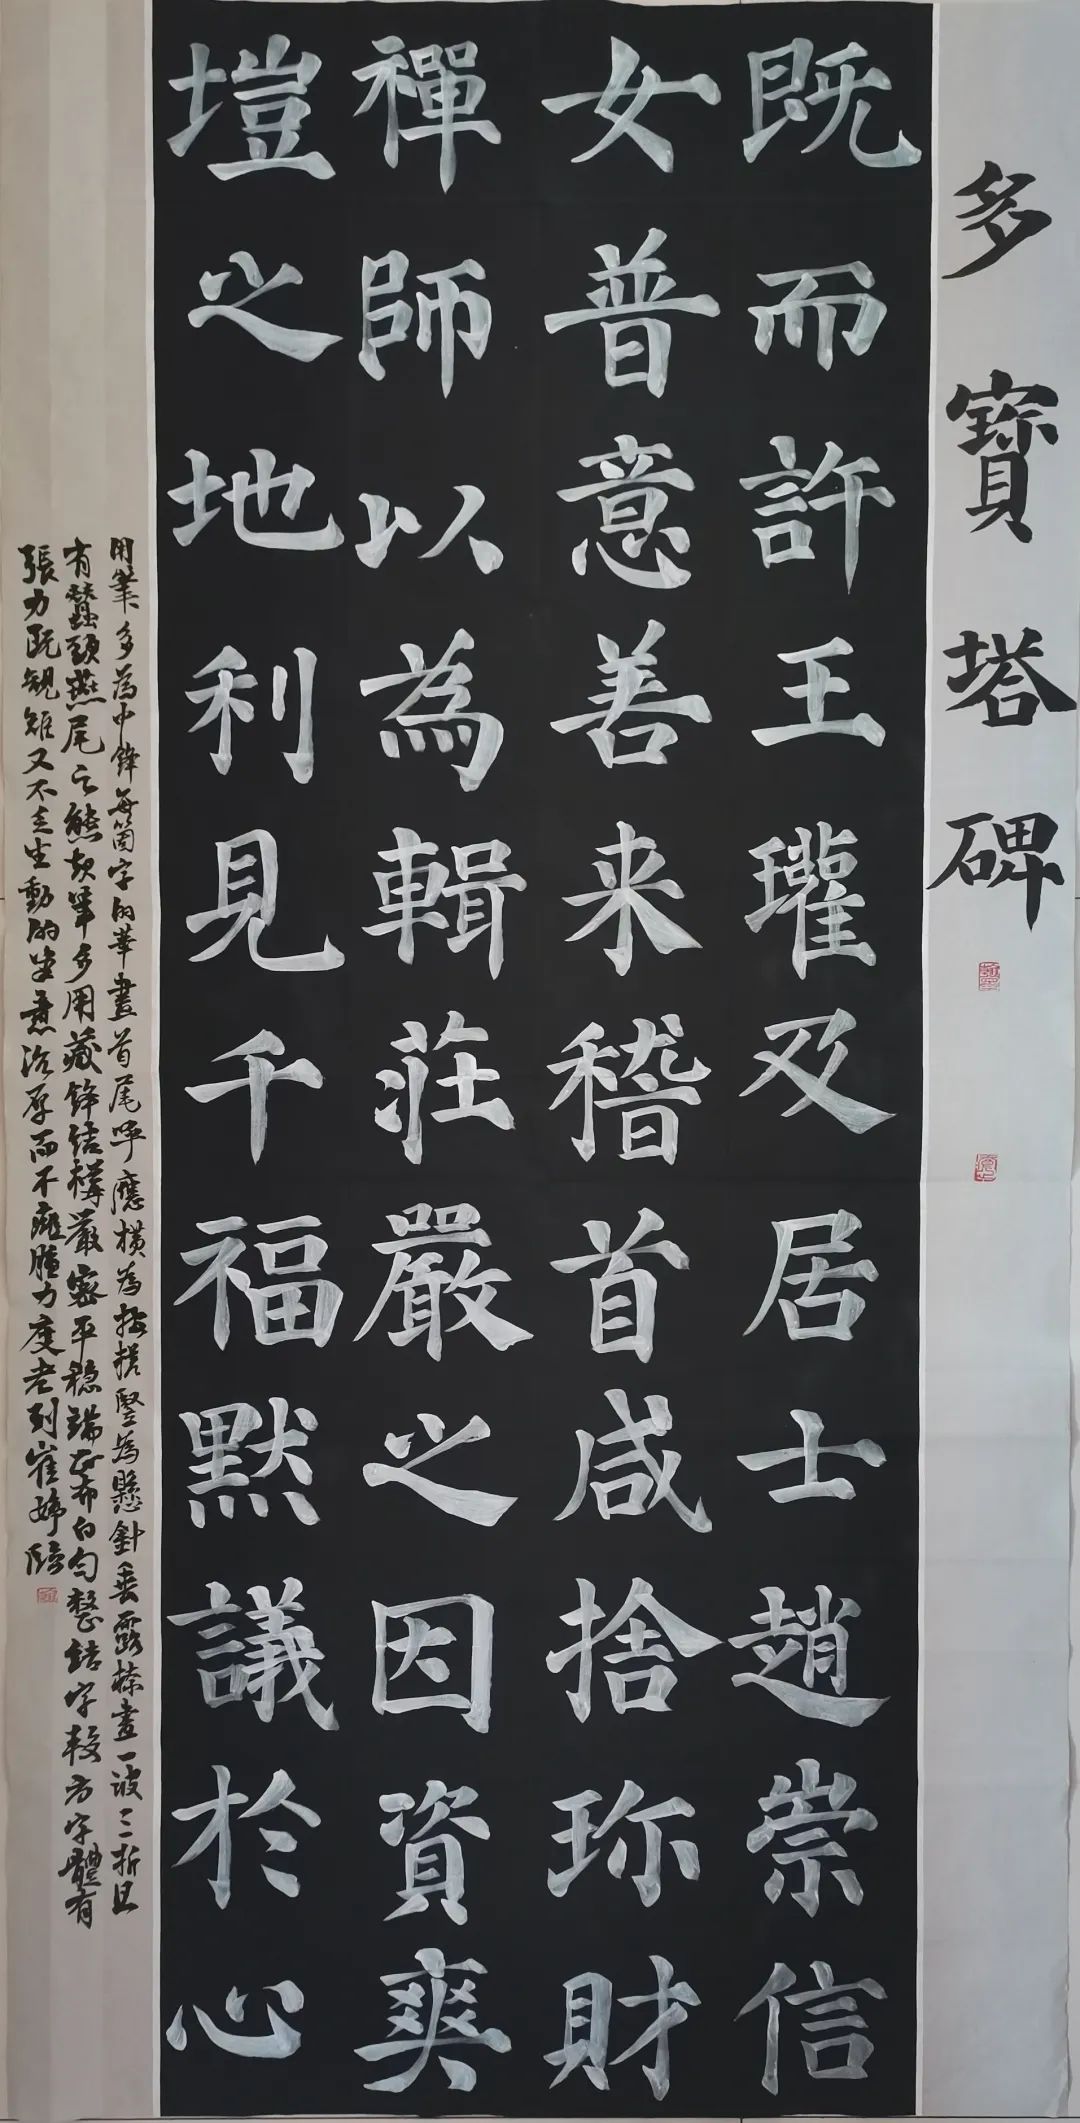 多寶塔碑
既而許王瓘及居士趙崇信
女普意善来稽首咸捨珎財
禪師以為輯莊嚴之因資爽
塏之地利見千福默議於心
用筆多為中鋒每箇字的筆畫首尾呼應橫為按搓豎為懸針垂露捺畫一波三折且
有蠶頭燕尾之態起筆多用藏鋒結構嚴密平穩端正布白勻整結字較方字體有
張力既規矩又不失生動的筆意渾厚而不臃腫力度老到崔婷臨